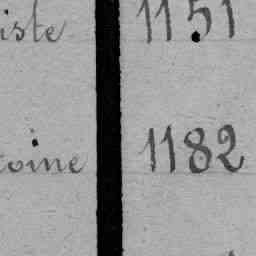 iste 1151
oine 1182